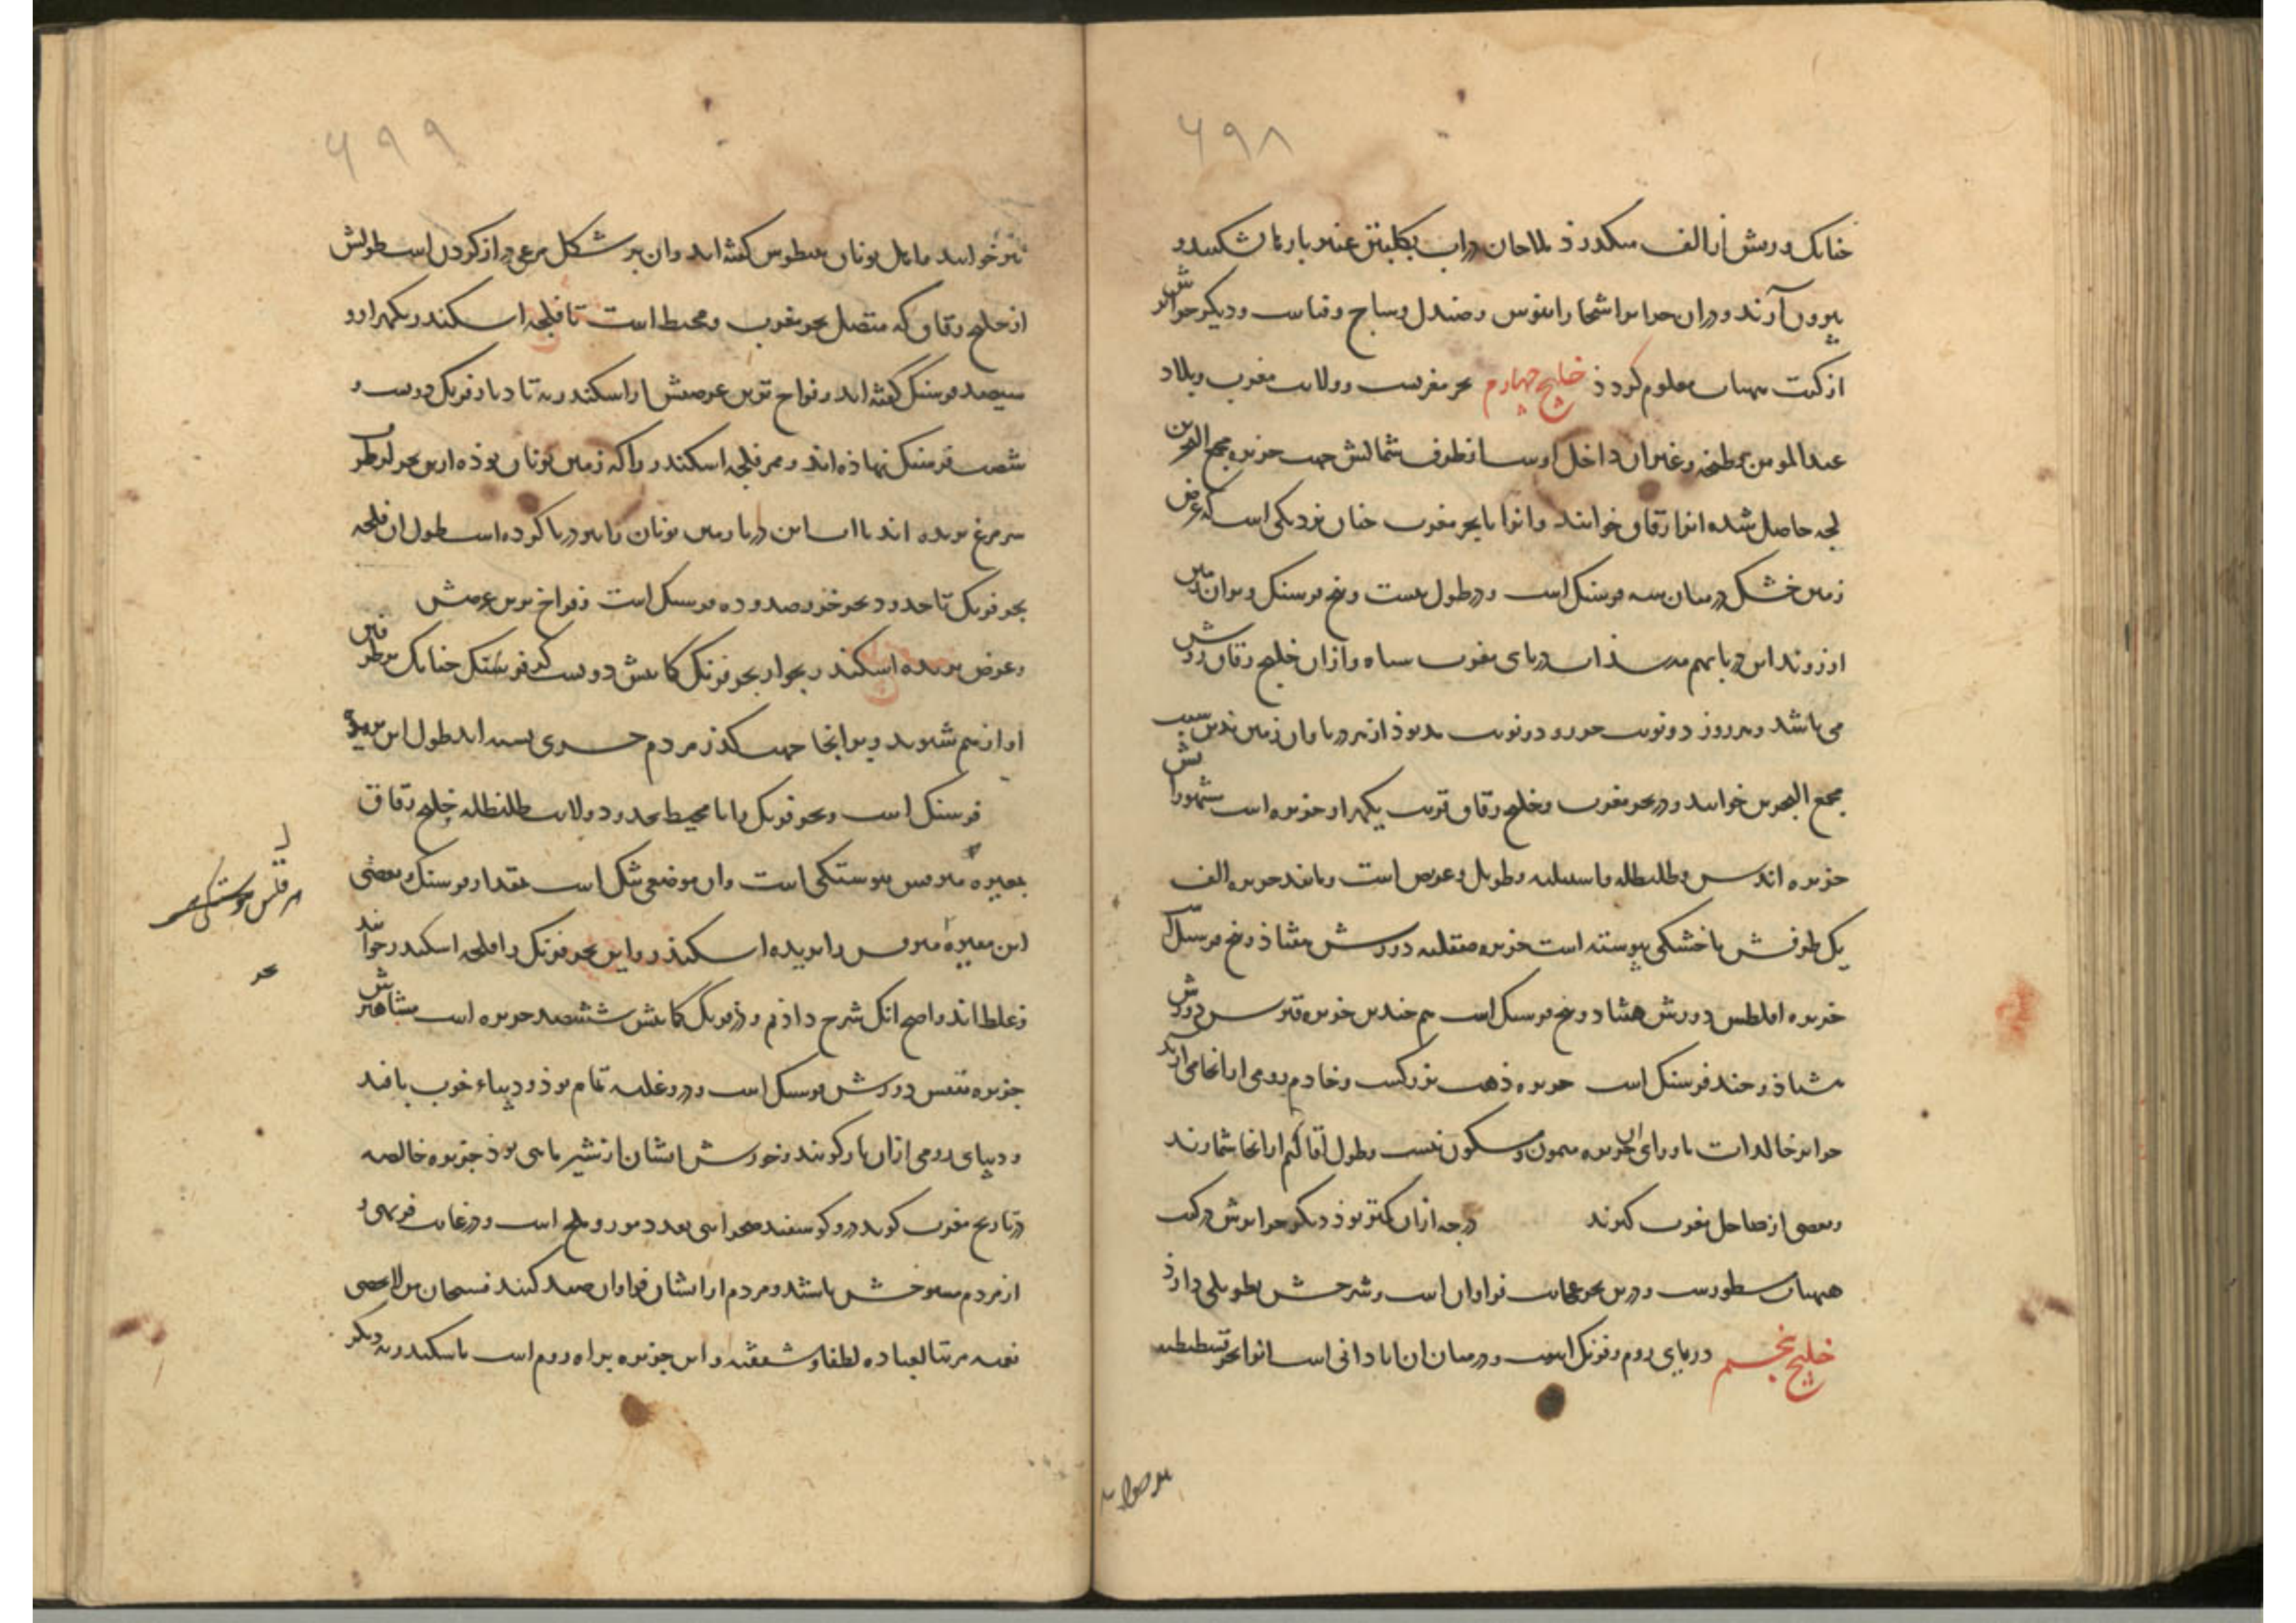 ۶۹۸
جنانک دورش از الف میگذرد ملاحان در آب بکلبتین عنبر بارها شکنند و
بیرون آرند و دران جزایر اشجار ابنوس و صندل و ساج و قناست و دیگر جزایرش
از کتب هیئات معلوم کردد خلیج چهارم بحر مغربست و ولایت مغرب و بلاد
عبدالمومن و طنجه و غیران داخل اوست از طرف شمالش جهت جزیره مجمع البحرین
لجه حاصل شده انرا زقاق خوانند و انرا با بحر مغرب جنان نزدیکی است که عرض
زمین خشک در میان سه فرسنک است و در طول بیست و پنج فرسنک و بران زمین
این دریا بهم میرسد اب دریای مغرب سیاه و ازان خلیج زقاق روشن
می باشد و هر روز دو نوبت جزر و دو نوبت مد بود از هر دریا و ان زمین بدین سبب
مجمع البحرین خوانند و در بحر مغرب و خلیج زقاق قریب یکهزار جزیره است مشهوراتش
جزیره اندلس و طلیطله و اسبیلیه و طویل و عریض است و مانند جزیره الف
یک طرفش با خشکی پیوسته است جزیره صقلیه دورش هشتاد و پنج فرسنک است
جزیره افلطس دورش هشتاد و پنج فرسنک است هم جندین جزیره قبرس دورش
هشتاد و جند فرسنک است جزیره ذهب بزرکست و خادم رومی از انجا می ارند
جزایر خالدات ماورای ان جزیره میمون و مسکون نیست و طول اقالیم از انجا شمارند
و بعضی از ساحل مغرب کیرند درجه ازان کمتر بود دیکر جزایرش در کتب
هیئات مسطورست و درین بحر عجایب فراوان است و شرحش بطویلی دارد
خلیج پنجم دریای روم و فرنک است و در میان ان ابادانی است انرا بحر قسطنطنیه
۶۹۹
نیز خوانند ماقبل یونان بنطوس کفته اند و ان بر شکل مرغی دراز کردن است طولش
از خلیج زقاق که متصل بحر مغرب و محیط است تا فلجه اسکندر یکهزار و
سیصد فرسنک کفته اند و فراخ ترین عرضش از اسکندریه تا دیار فرنک دویست و
شصت فرسنک نهاذه اند و ممر فلجه اسکندر را که زمین یونان بوذه ازین بحر بر طرف
سر مرغ بریده اند تا اب این دریا زمین یونان را نیز دریا کرده است طول ان فلجه
بحر فرنک تا حدود بحر خزر صد و ده فرسنک است و فراخ ترین عرضش
و عرض بریده اسکندر بجوار بحر فرنک کمابیش دویست کز فرسنک جنانک بر طرفین
اواز هم شنوند و بر انجا جهت کذر مردم جسری بسته اند طول این بریده
فرسنک است و بحر فرنک را با محیط بحدود ولایت طلیطله خلیج زقاق
پیوستکی است و ان موضعی تنک است بمقدار فرسنک و بعضی
این را بریده اسکندر و این بحر فرنک را فلجه اسکندر خوانند
و غلط اند و اصح انک شرح دادم و در فرنک کمابیش ششصد جزیره است مشاهیرش
جزیره تنیس دورش فرسنک است و درو غله تمام بوذ و دیباء خوب بافند
و دیبای رومی ازان باز کویند و خورش ایشان از شیر ماهی بوذ جزیره خالصه
در تاریخ مغرب کوید درو کوسفند صحرایی بعدد مور و ملخ است و در غایت فربهی و
از مردم متوحش باشند و مردم از ایشان فراوان صید کنند فسبحان من لا یحصی
نعمه مرتبا لعباده لطفا و شفقه و این جزیره براه روم است باسکندریه دیکر
بحر